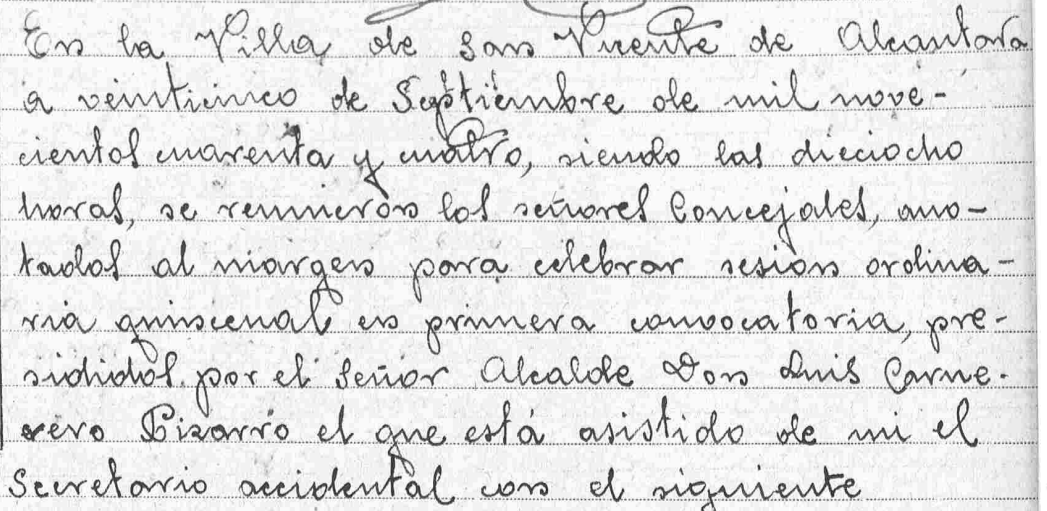 En la Villa de San Vicente de Alcantara
a veinticinco de Septiembre de mil nove-
cientos cuarenta y cuatro, siendo las dieciocho
horas, se reunieron los señores Concejales, ano-
tados al margen para celebrar sesion ordina-
ria quincenal en primera convocatoria, pre-
sididos por el Señor Alcalde Don Luis Carne-
rero Pizarro el que esta asistido de mi el
Secretario accidental con el siguiente